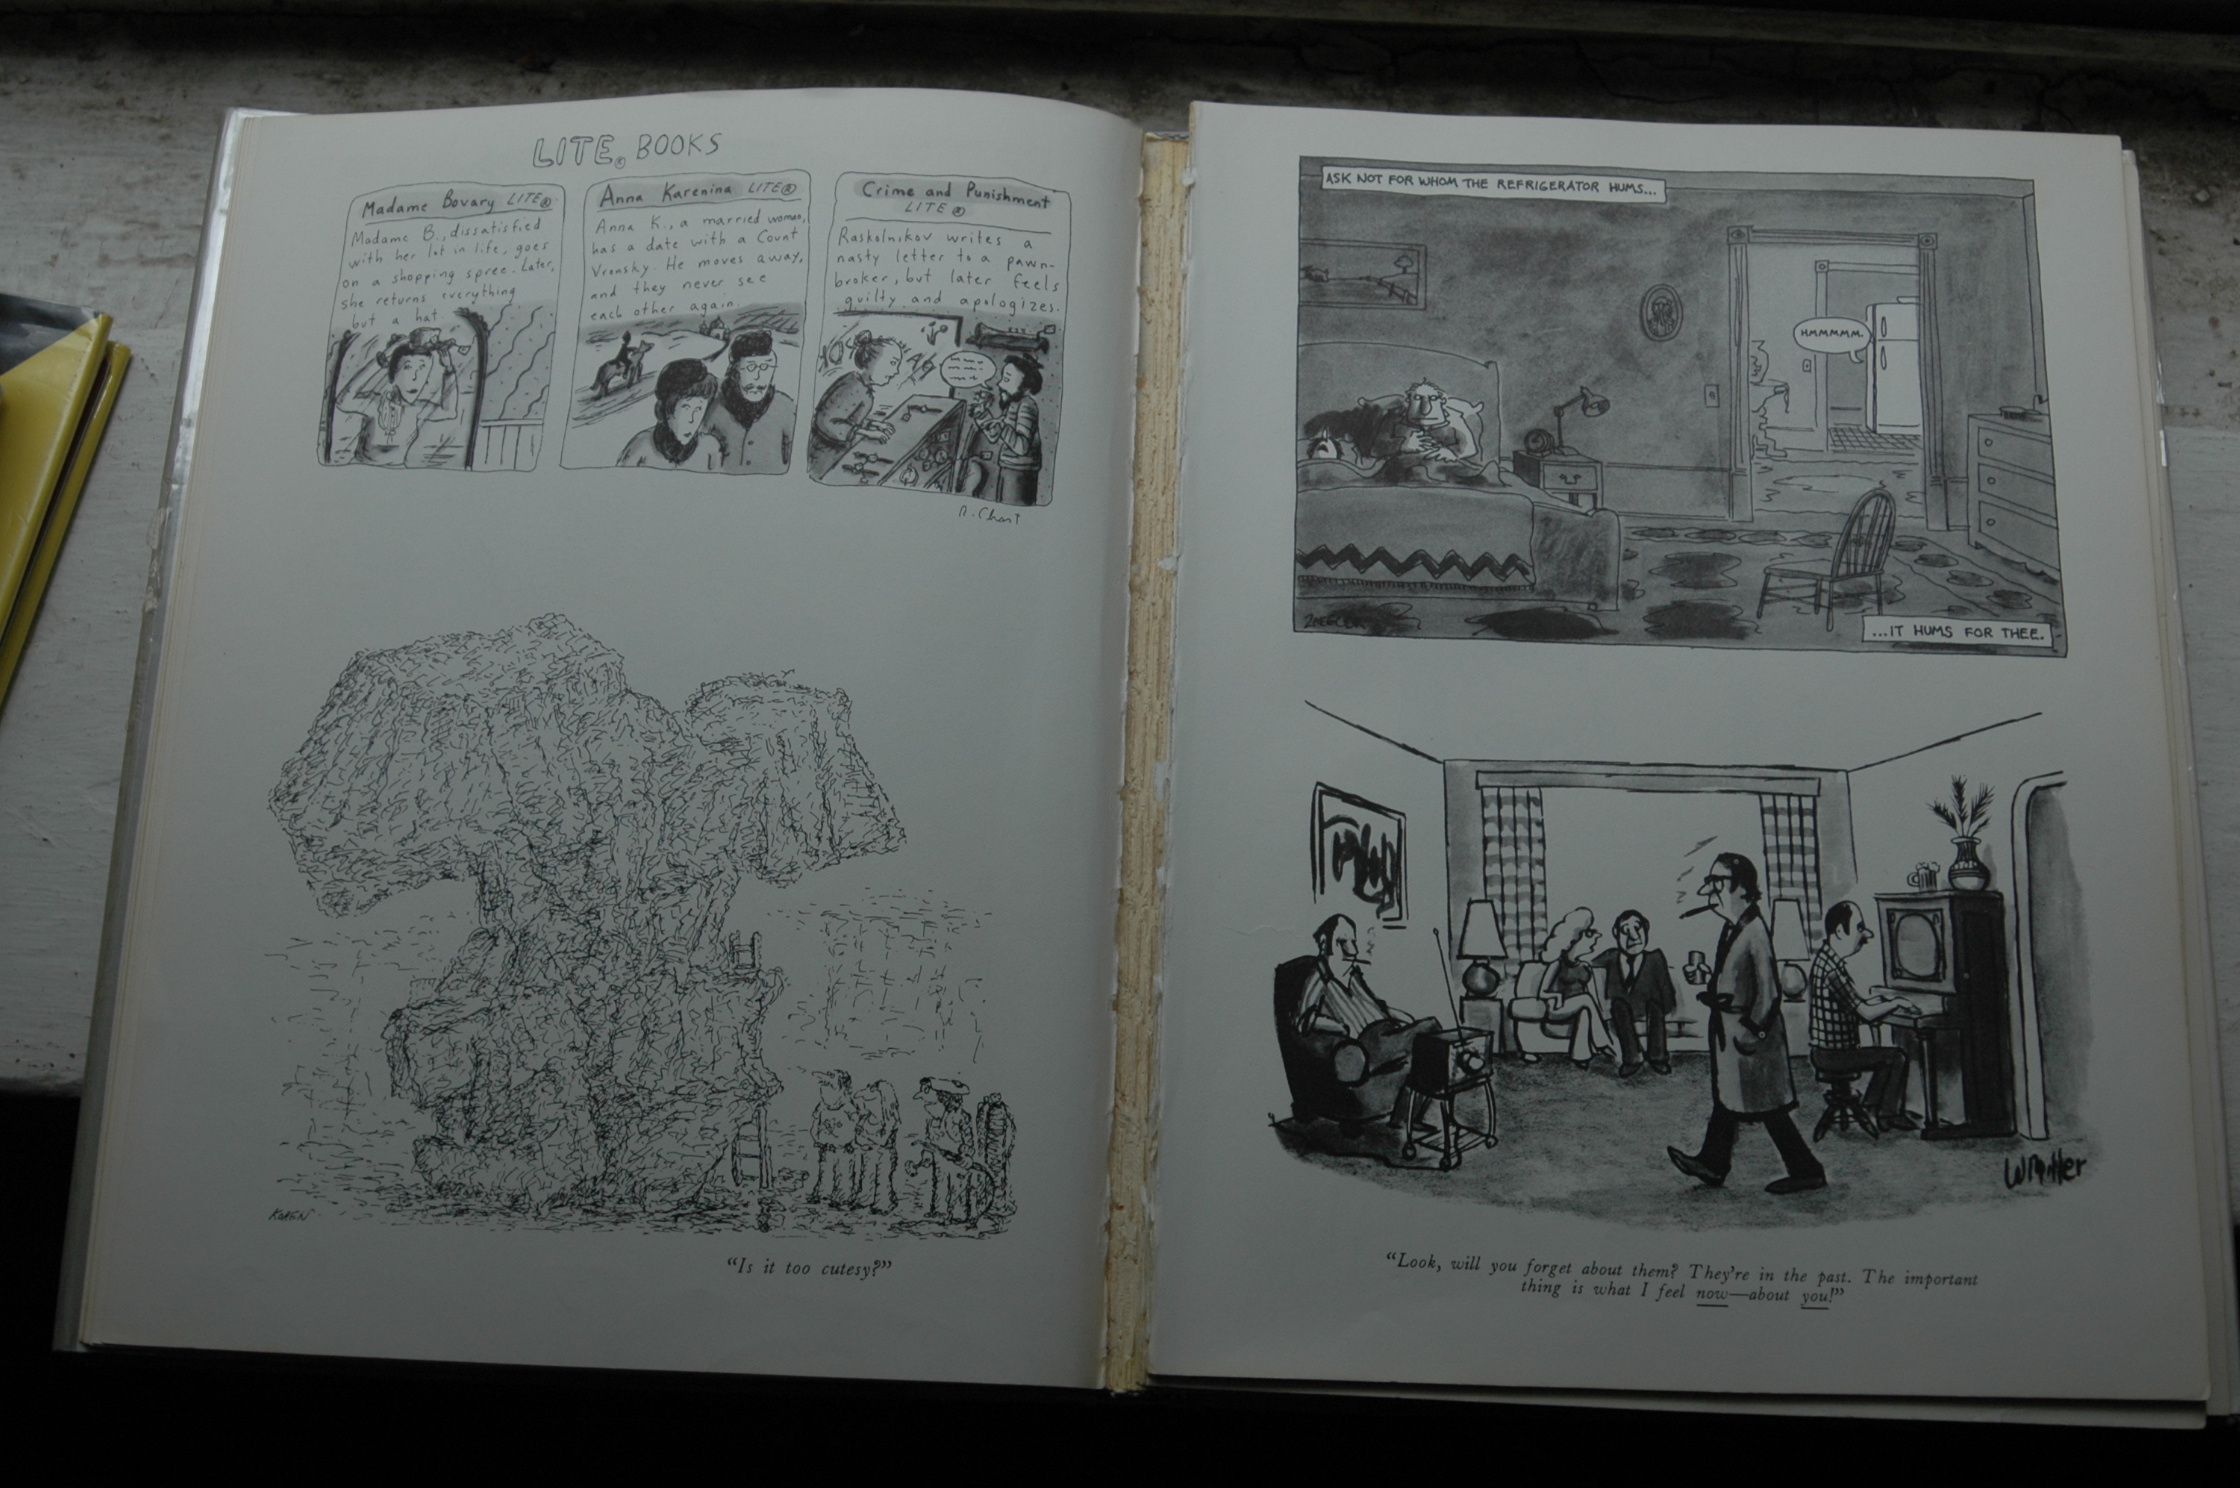 LITE® BOOKS
Madame Bovary LITE®
Madame B., dissatisfied
with her lot in life, goes
on a shopping spree. Later,
she returns everything
but a hat.
Anna Karenina LITE®
Anna K., a married woman,
has a date with a Count
Vronsky. He moves away,
and they never see
each other again.
Crime and Punishment
LITE®
Raskolnikov writes a
nasty letter to a pawn-
broker, but later feels
guilty and apologizes.
R. Chast
KOREN
"Is it too cutesy?"
ASK NOT FOR WHOM THE REFRIGERATOR HUMS...
HMMMMMM.
ZIEGLER
...IT HUMS FOR THEE.
WMiller
"Look, will you forget about them? They're in the past. The important
thing is what I feel now—about you!"